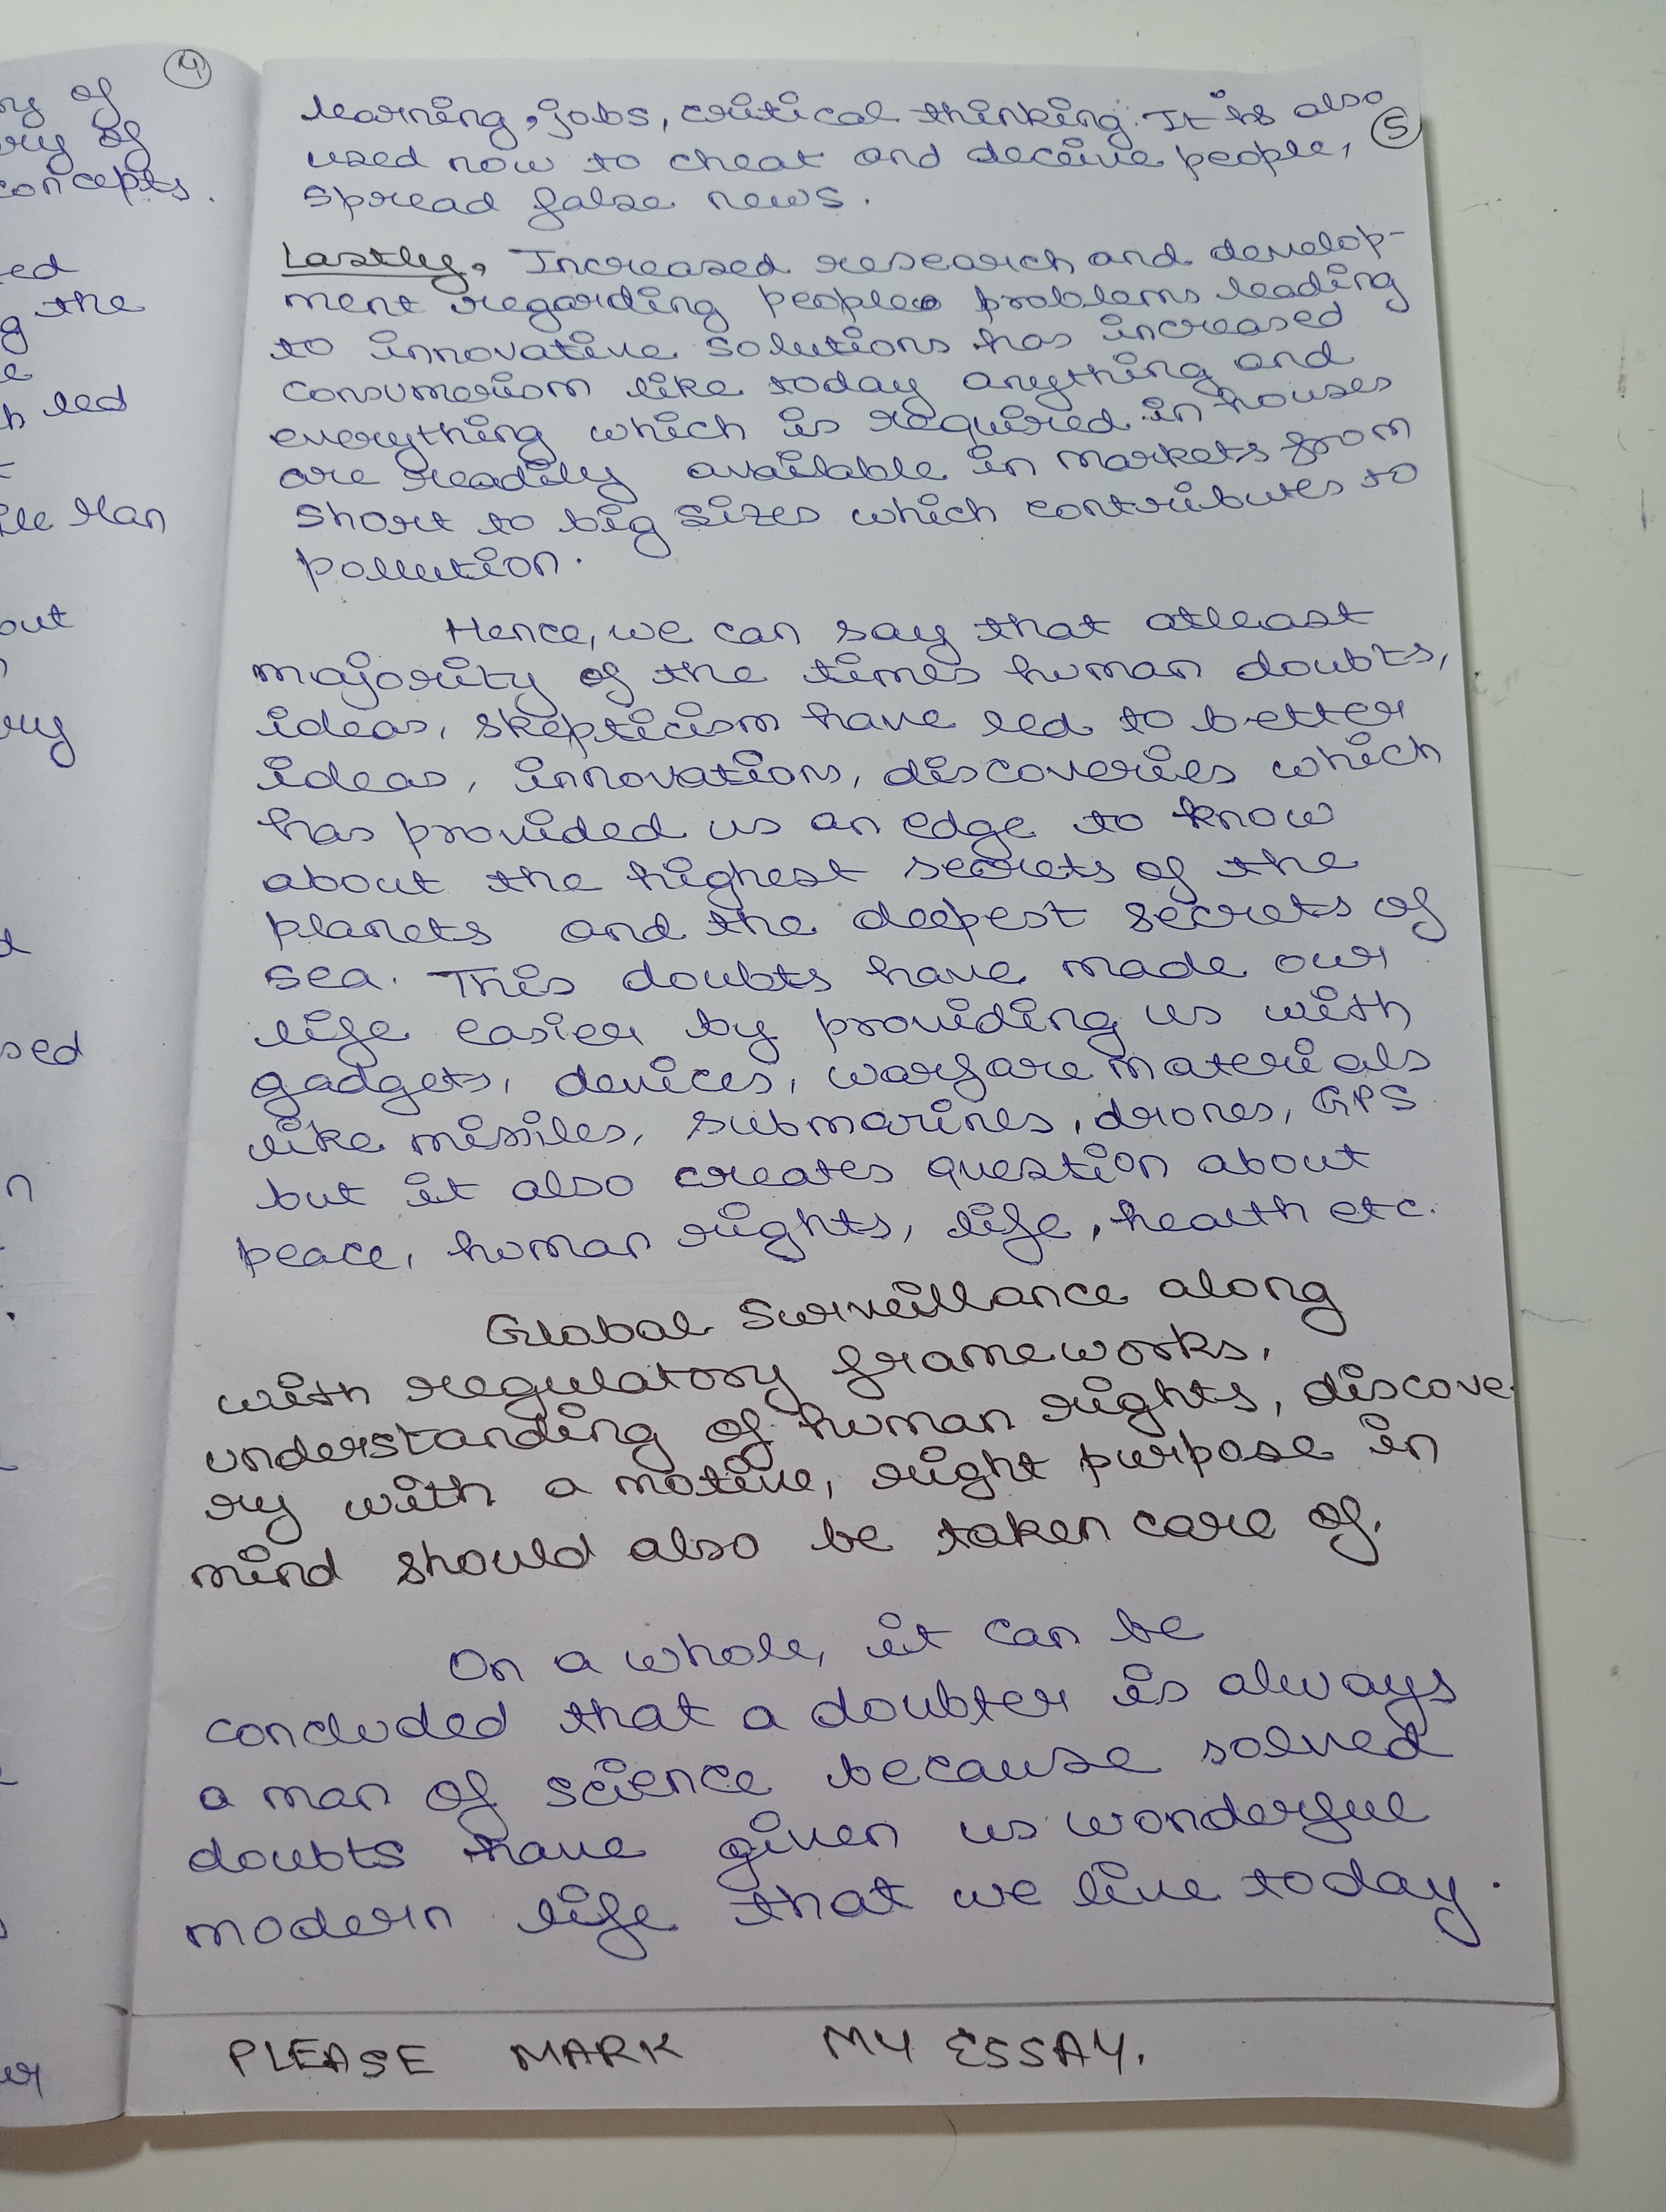 4
ry of
ery of
concepts.
ed
g the
e
h led
ile Man
out
ry
d
sed
n
er
5
learning, jobs, critical thinking. It is also
used now to cheat and deceive people,
spread false news.
Lastly, Increased research and develop-
ment regarding people problems leading
to innovative solutions has increased
consumerism like today anything and
everything which is required in houses
are readily available in markets from
short to big sizes which contributes to
pollution.
Hence, we can say that atleast
majority of the times human doubts,
ideas, skepticism have led to better
ideas, innovations, discoveries which
has provided us an edge to know
about the highest secrets of the
planets and the deepest secrets of
sea. This doubts have made our
life easier by providing us with
gadgets, devices, warfare materials
like missiles, submarines, drones, GPS
but it also creates question about
peace, human rights, life, health etc.
Global Surveillance along
with regulatory frameworks,
understanding of human rights, discove-
ry with a motive, right purpose in
mind should also be taken care of.
On a whole, it can be
concluded that a doubter is always
a man of science because solved
doubts have given us wonderful
modern life that we live today.
PLEASE MARK MY ESSAY.